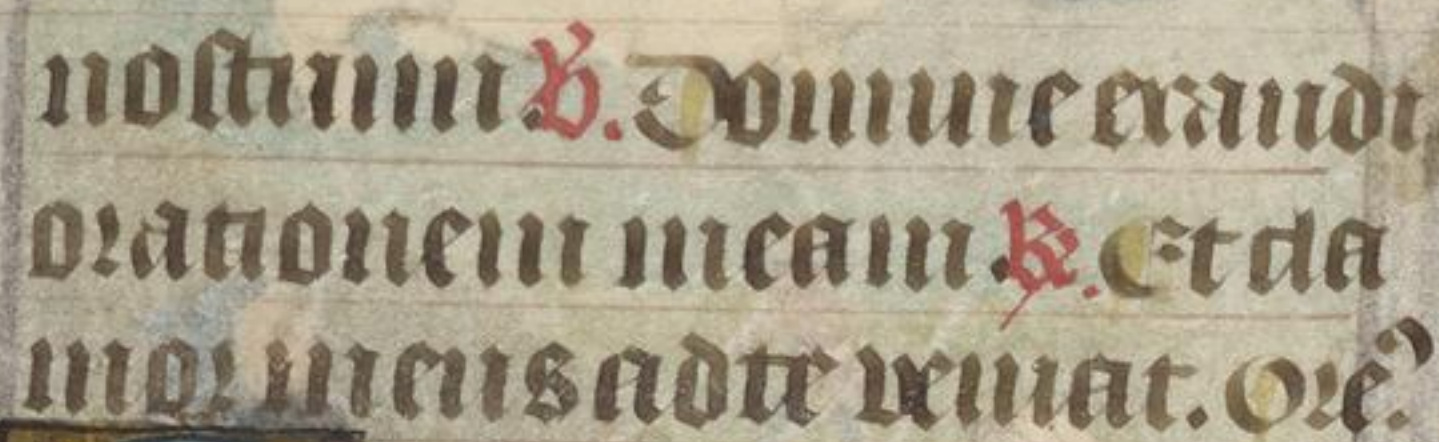 nostrum ℣. Domine exaudi
orationem meam ℟. Et cla
mor meus ad te veniat. Ore᷒